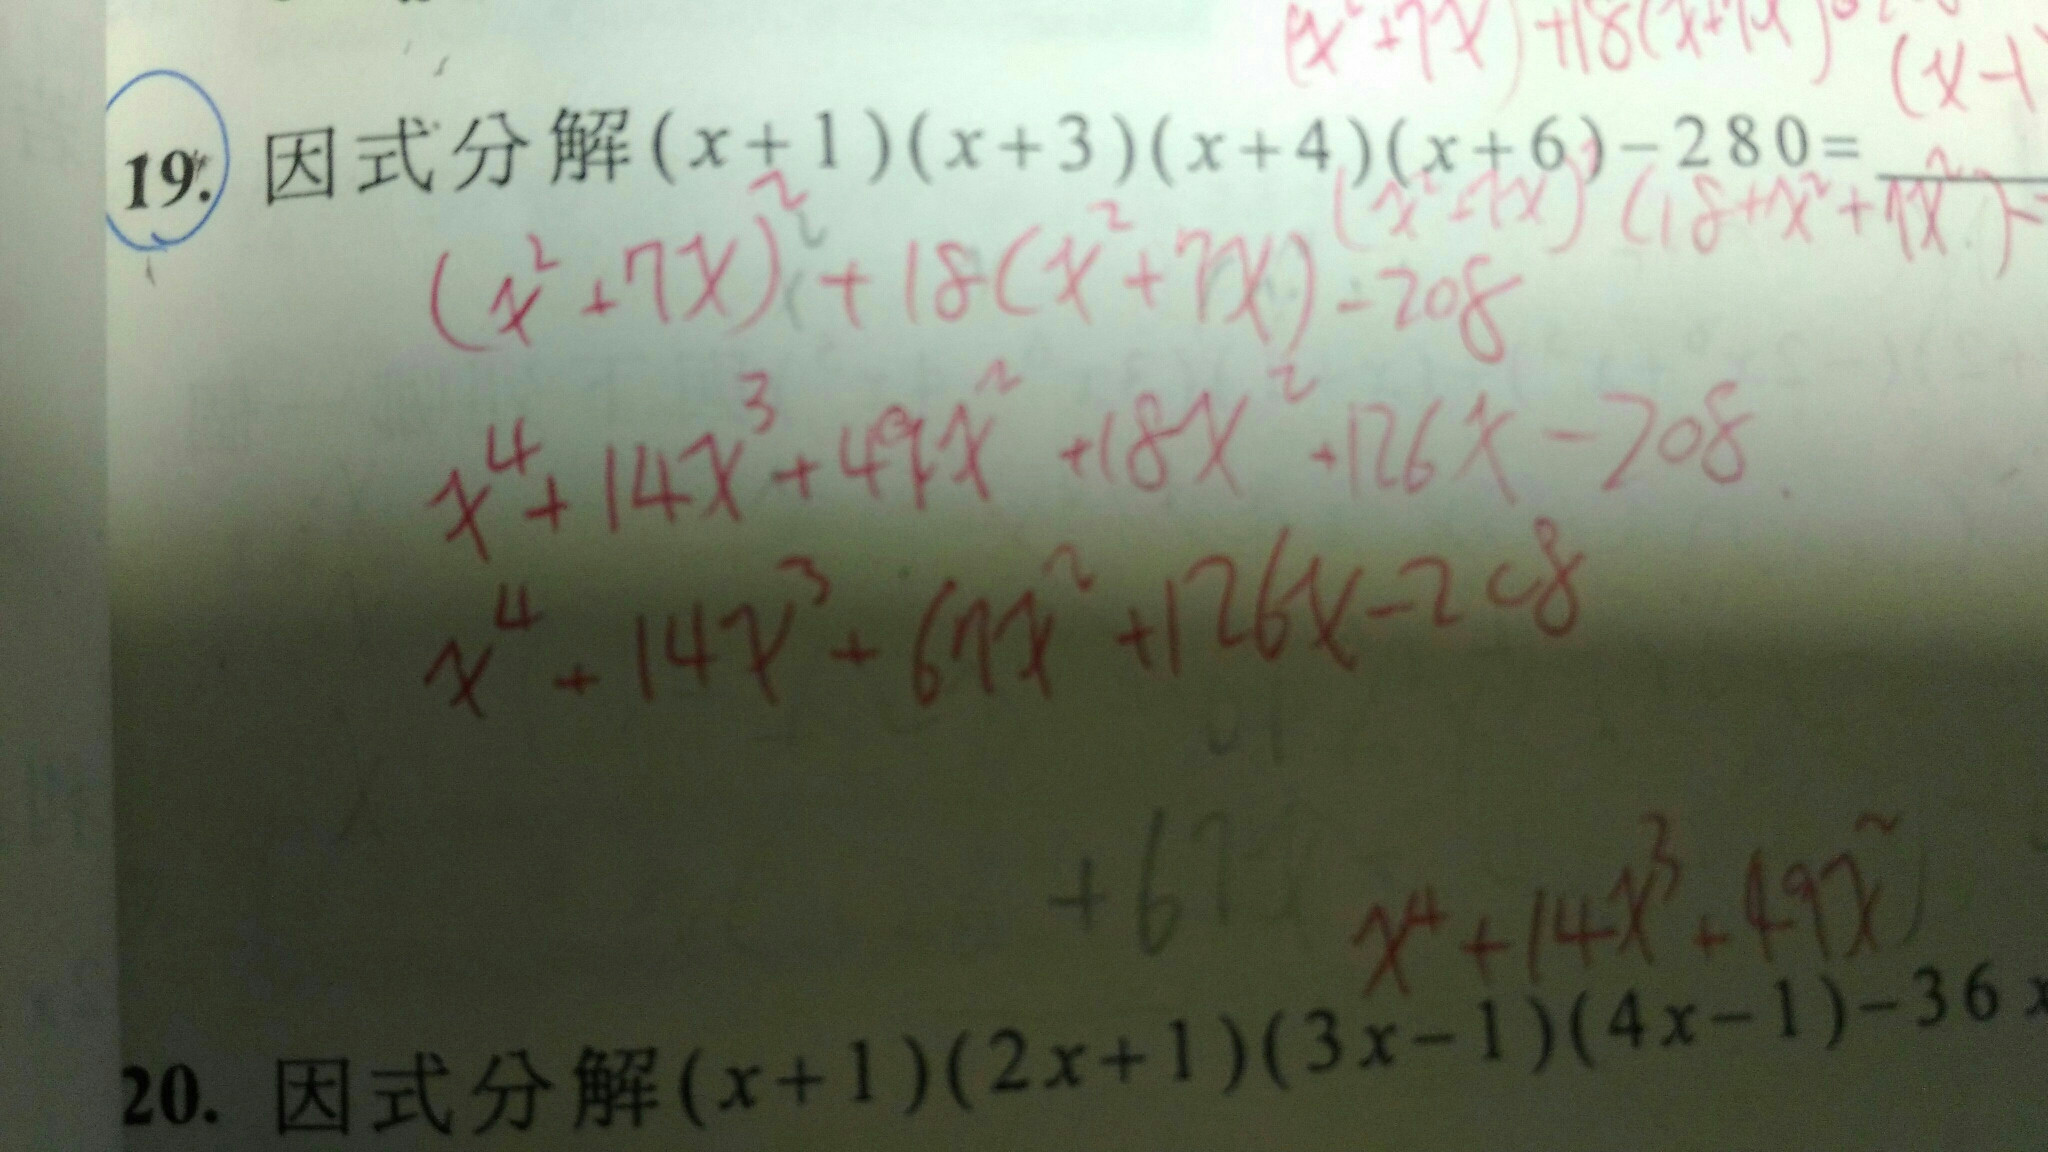 (x²+7x)+18(x+7x)
(x-1
19. 因式分解(x+1)(x+3)(x+4)(x+6)-280=
(x²+7x)² (18+x²+7x²)-
(x²+7x)²+18(x²+7x)-208
x⁴+14x³+49x²+18x²+126x-208
x⁴+14x³+67x²+126x-208
+67
x⁴+14x³+49x²
20. 因式分解(x+1)(2x+1)(3x-1)(4x-1)-36x